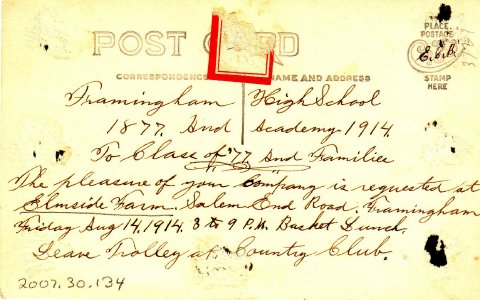 POST CARD
CORRESPONDENCE NAME AND ADDRESS
PLACE
POSTAGE
E.C.B.
STAMP
HERE
Framingham High School
1877. And Academy 1914.
To Class of '77 And Families
The pleasure of your Company is requested at
Elmside Farm. Salem End Road. Framingham
Friday Aug 14, 1914. 3 to 9 P.M. Basket Lunch.
Leave Trolley at Country Club.
2007.30.134